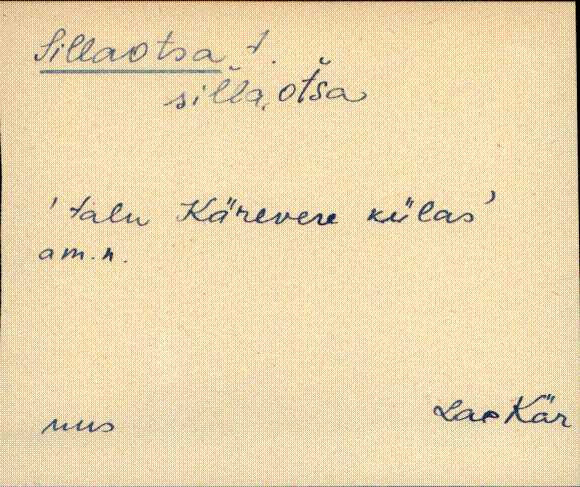 Sillaotsa t.
silla, otsa
'talu Kärevere külas'
am. n.
nus
Lae Kär